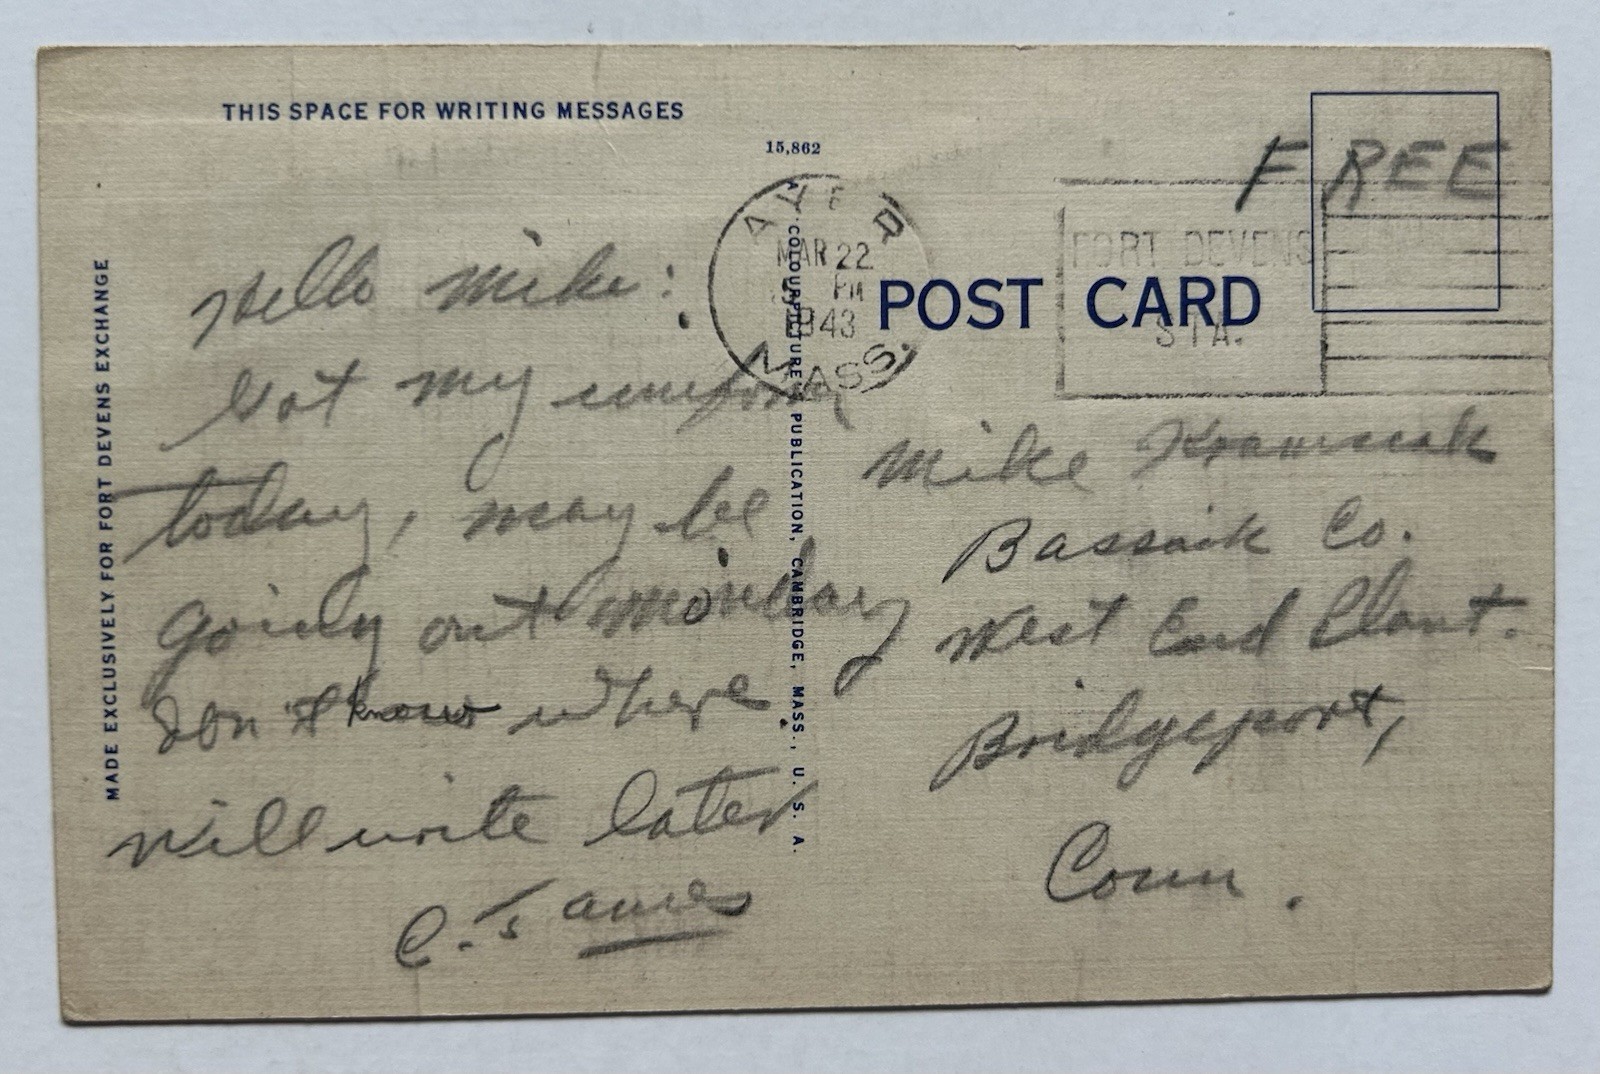 THIS SPACE FOR WRITING MESSAGES
15,862
FREE
AYER
MAR 22
5 PM
1943
MASS.
FORT DEVENS
STA.
POST CARD
MADE EXCLUSIVELY FOR FORT DEVENS EXCHANGE
A COLOURPICTURE PUBLICATION, CAMBRIDGE, MASS., U. S. A.
Hello Mike:
Got my uniform
today, may be
going out Monday
don't know where
will write later
C. James
Mike
Bassick Co.
West End Plant.
Bridgeport,
Conn.